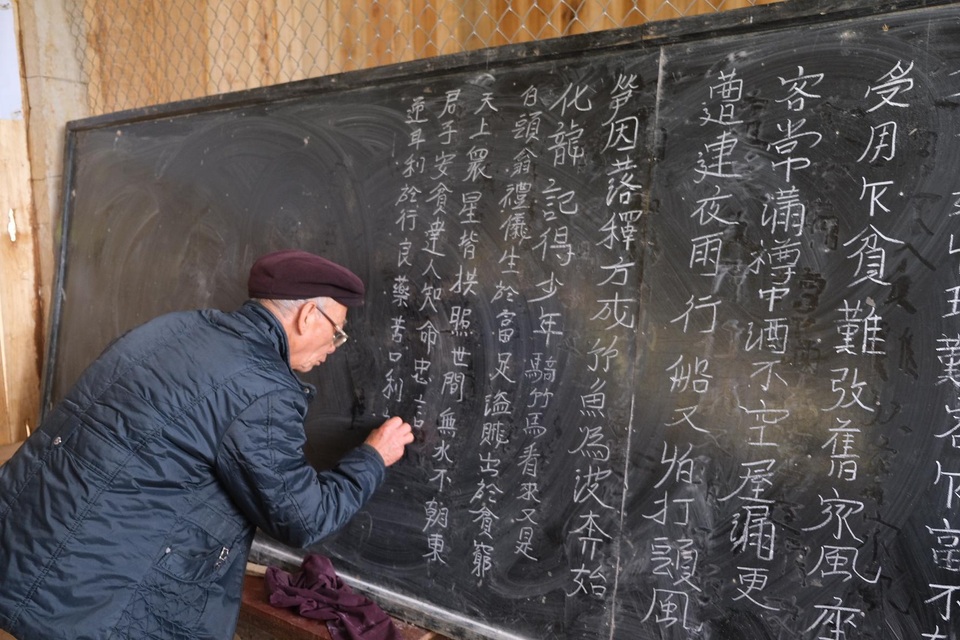 難客乍富不
受用乍貧難改舊家風座
客常滿樽中酒不空屋漏更
遭連夜雨行船又怕打頭風
筍因落釋方成竹魚為波奔始
化龍記得少年騎竹馬看來又是
白頭翁禮儀生於富足盜賊出於貧窮
天上眾星皆拱照世間無水不朝東
君子安貧達人知命忠言
逆耳利於行良藥苦口利